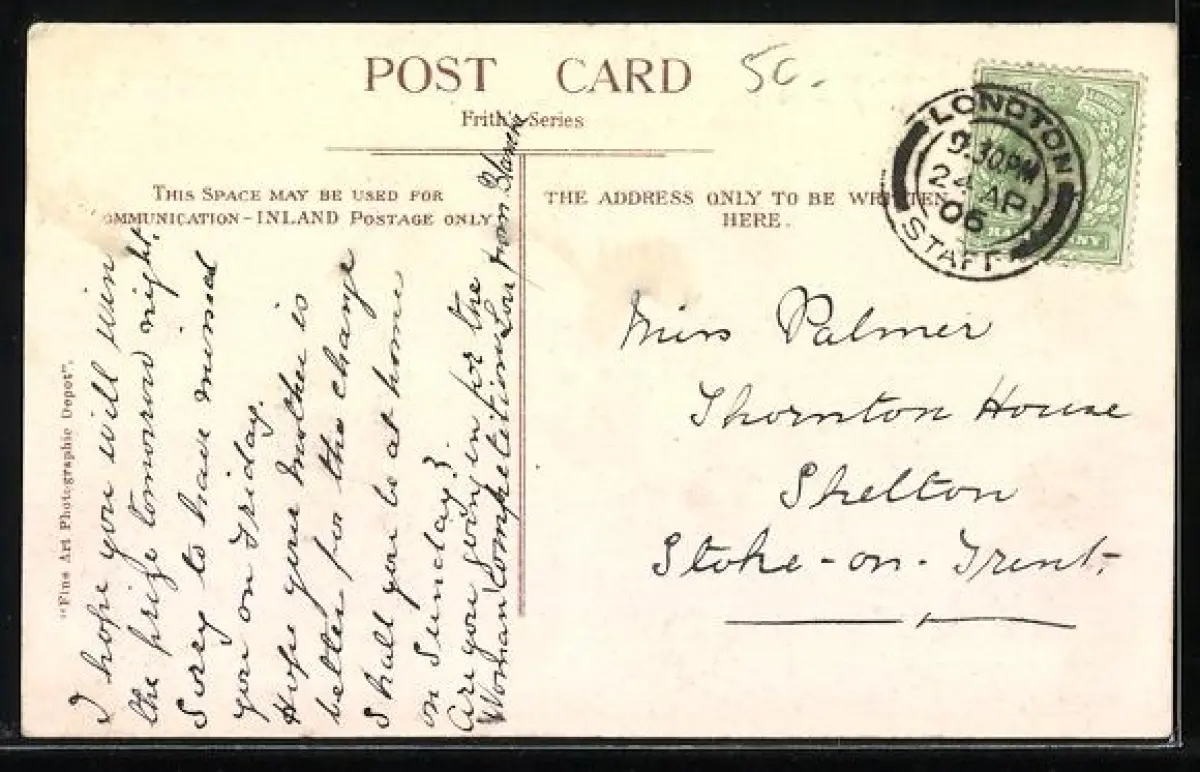 POST CARD
50.
Frith's Series
THIS SPACE MAY BE USED FOR
OMMUNICATION-INLAND POSTAGE ONLY
THE ADDRESS ONLY TO BE WRITTEN
HERE.
LONGTON
9.30PM
24 AP
06
STAFF
HALFPENNY
"Fine Art Photographic Depot".
I hope you will win
the prize tomorrow night.
Sorry to have missed
you on Friday.
Hope your Mother is
better for the change
Shall you be at home
on Sunday?
Are you going in for the
Woman Competition Love from Blanche
Miss Palmer
Thornton House
Shelton
Stoke-on-Trent